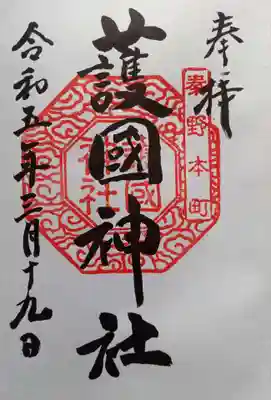 奉拝
秦野本町
護國神社
令和五年三月十九日